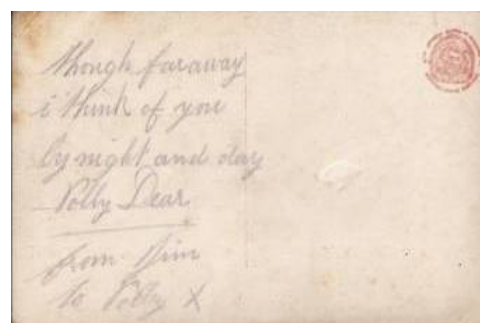 Though far away
i think of you
by night and day
Polly Dear
from Jim
to Polly X